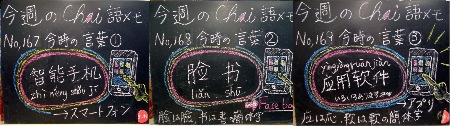 今週のChai語メモ
No,167 今時の言葉①
智能手机
zhì néng shǒu jī
→スマートフォン
今週のChai語メモ
No,168 今時の言葉②
脸书
liǎn shū
Face bo
脸は臉、书は書の簡体字
今週のChai語メモ
No,169 今時の言葉③
yìng yòng ruǎn jiàn
应用软件
→アプリ
应は応、软は軟の簡体字